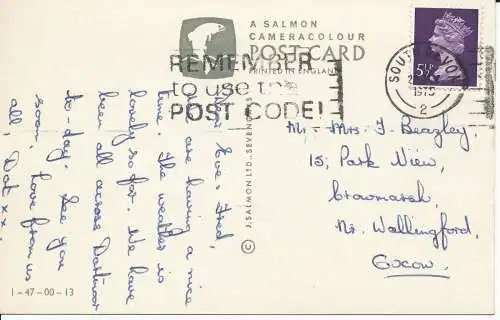 A SALMON
CAMERACOLOUR
POST CARD
PRINTED IN ENGLAND
REMEMBER
to use the
POST CODE!
SOUTH DEVON
1975
2
5½P
Dear Eve & Fred,
We are having a nice
time. The weather is
lovely so far. We have
been all across Dartmoor
to-day. See you
soon, love from us
all, Dot xx.
© J. SALMON LTD., SEVENOAKS
Mr Mrs F. Beazley,
15, Park View,
Crowmarsh,
Nr. Wallingford,
Oxon.
1-47-00-13